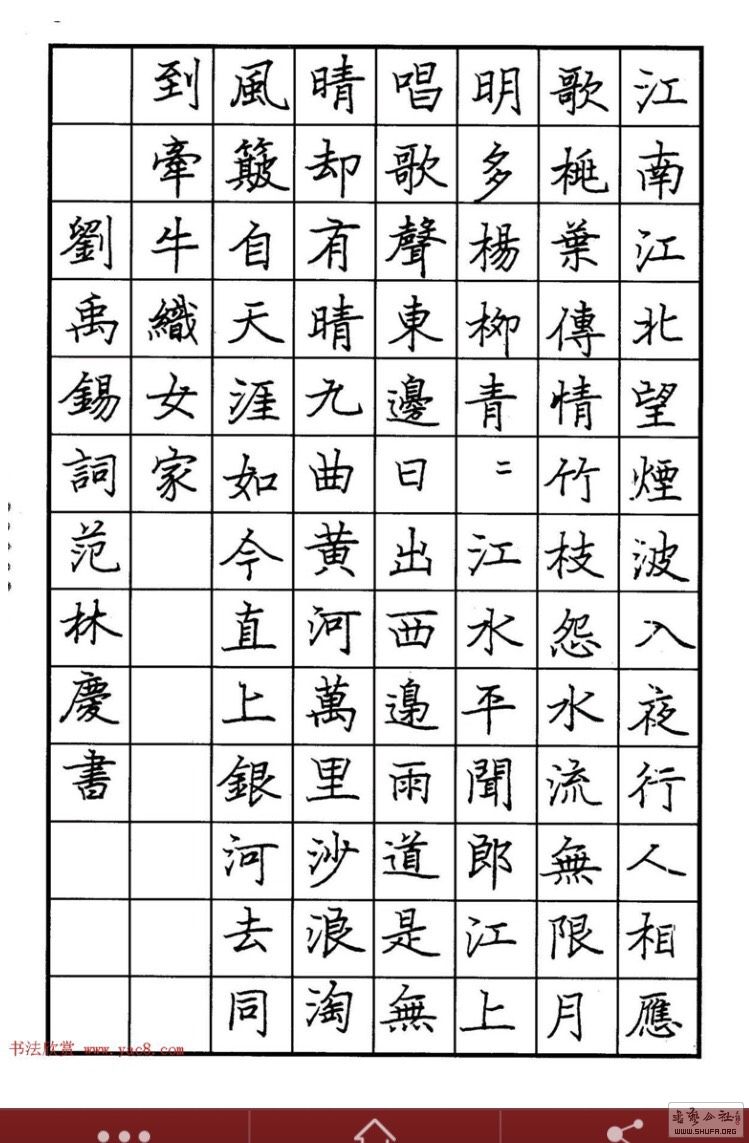 江南江北望煙波入夜行人相應
歌桃葉傳情竹枝怨水流無限月
明多楊柳青〻江水平聞郎江上
唱歌聲東邊日出西邊雨道是無
晴却有晴九曲黄河萬里沙浪淘
風簸自天涯如今直上銀河去同
到牽牛織女家
劉禹錫詞范林慶書
书法欣赏 www.yac8.com
WWW.SHUFA.ORG